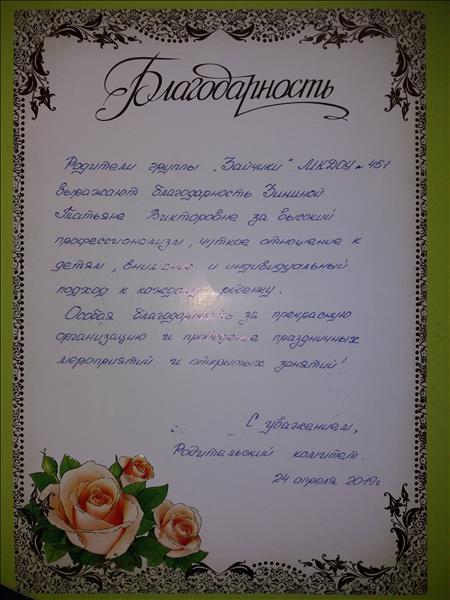 Благодарность
Родители группы „Зайчики" МКДОУ № 451
выражают благодарность Зининой
Татьяне Викторовне за высокий
профессионализм, чуткое отношение к
детям, внимание и индивидуальный
подход к каждому ребенку.
Особая благодарность за прекрасную
организацию и проведение праздничных
мероприятий и открытых занятий!
С уважением,
Родительский комитет.
24 апреля 2019г